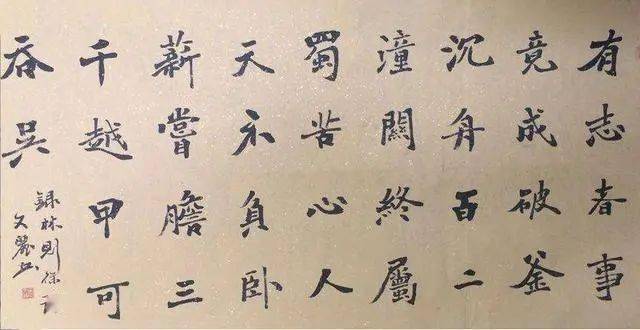 有志者事
竟成破釜
沉舟百二
潼關終屬
蜀苦心人
天不負卧
薪嘗膽三
千越甲可
吞吳
錄林則徐
文麗書